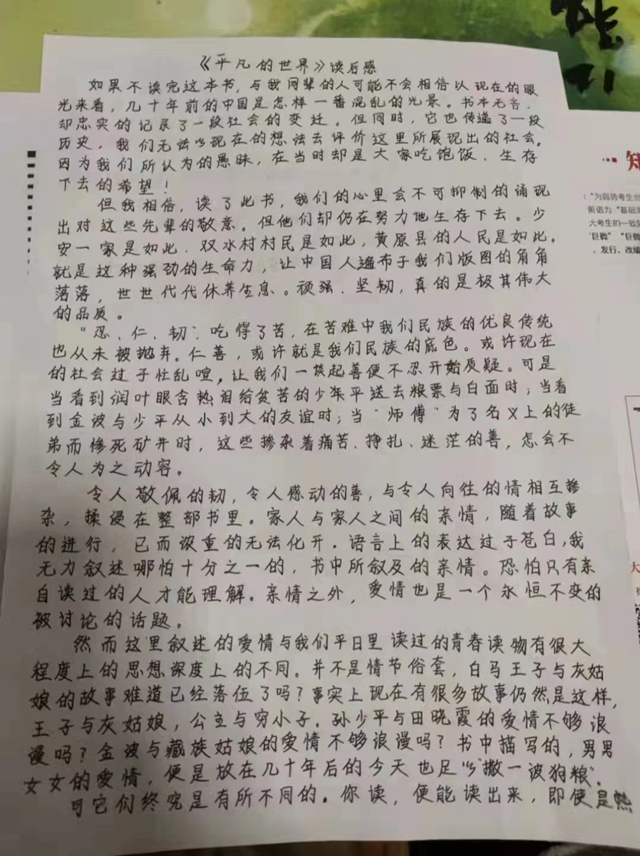 《平凡的世界》读后感
如果不读完这本书，与我同辈的人可能不会相信以现在的眼
光来看，几十年前的中国是怎样一番混乱的光景。书本无言，
却忠实的记录了一段社会的变迁。但同时，它也传递了一段
历史，我们无法以现在的想法去评价这里所展现出的社会。
因为我们所认为的愚昧，在当时却是大家吃饱饭、生存
下去的希望！
但我相信，读了此书，我们的心里会不可抑制的涌现
出对这些先辈的敬意。但他们却仍在努力地生存下去。少
安一家是如此，双水村村民是如此，黄原县的人民是如此。
就是这种强劲的生命力，让中国人遍布于我们版图的角角
落落，世世代代休养生息。顽强、坚韧，真的是极其伟大
的品质。
“忍、仁、韧”，吃得了苦，在苦难中我们民族的优良传统
也从未被抛弃。仁善，或许就是我们民族的底色。或许现在
的社会过于杂乱喧，让我们一谈起善便不忍开始质疑。可是
当看到润叶眼含热泪给贫苦的少年平送去粮票与白面时；当看
到金波与少平从小到大的友谊时；当“师傅”为了名义上的徒
弟而惨死矿井时，这些掺杂着痛苦、挣扎、迷茫的善，怎会不
令人为之动容。
令人敬佩的韧，令人感动的善，与令人向往的情相互掺
杂，揉侵在整部书里。家人与家人之间的亲情，随着故事
的进行，已而浓重的无法化开。语言上的表达过于苍白，我
无力叙述哪怕十分之一的，书中所叙及的亲情。恐怕只有亲
自读过的人才能理解。亲情之外，爱情也是一个永恒不变的
被讨论的话题。
然而这里叙述的爱情与我们平日里读过的青春读物有很大
程度上的思想深度上的不同。并不是情节俗套，白马王子与灰姑
娘的故事难道已经落伍了吗？事实上现在有很多故事仍然是这样，
王子与灰姑娘，公主与穷小子。孙少平与田晓霞的爱情不够浪
漫吗？金波与藏族姑娘的爱情不够浪漫吗？书中描写的，男男
女女的爱情，便是放在几十年后的今天也足以“撒一波狗粮”。
可它们终究是有所不同的。你读，便能读出来，即使是
“为弱师考生
英语为“基础
大考生的一致
“巨微”“巨
，发行、改编